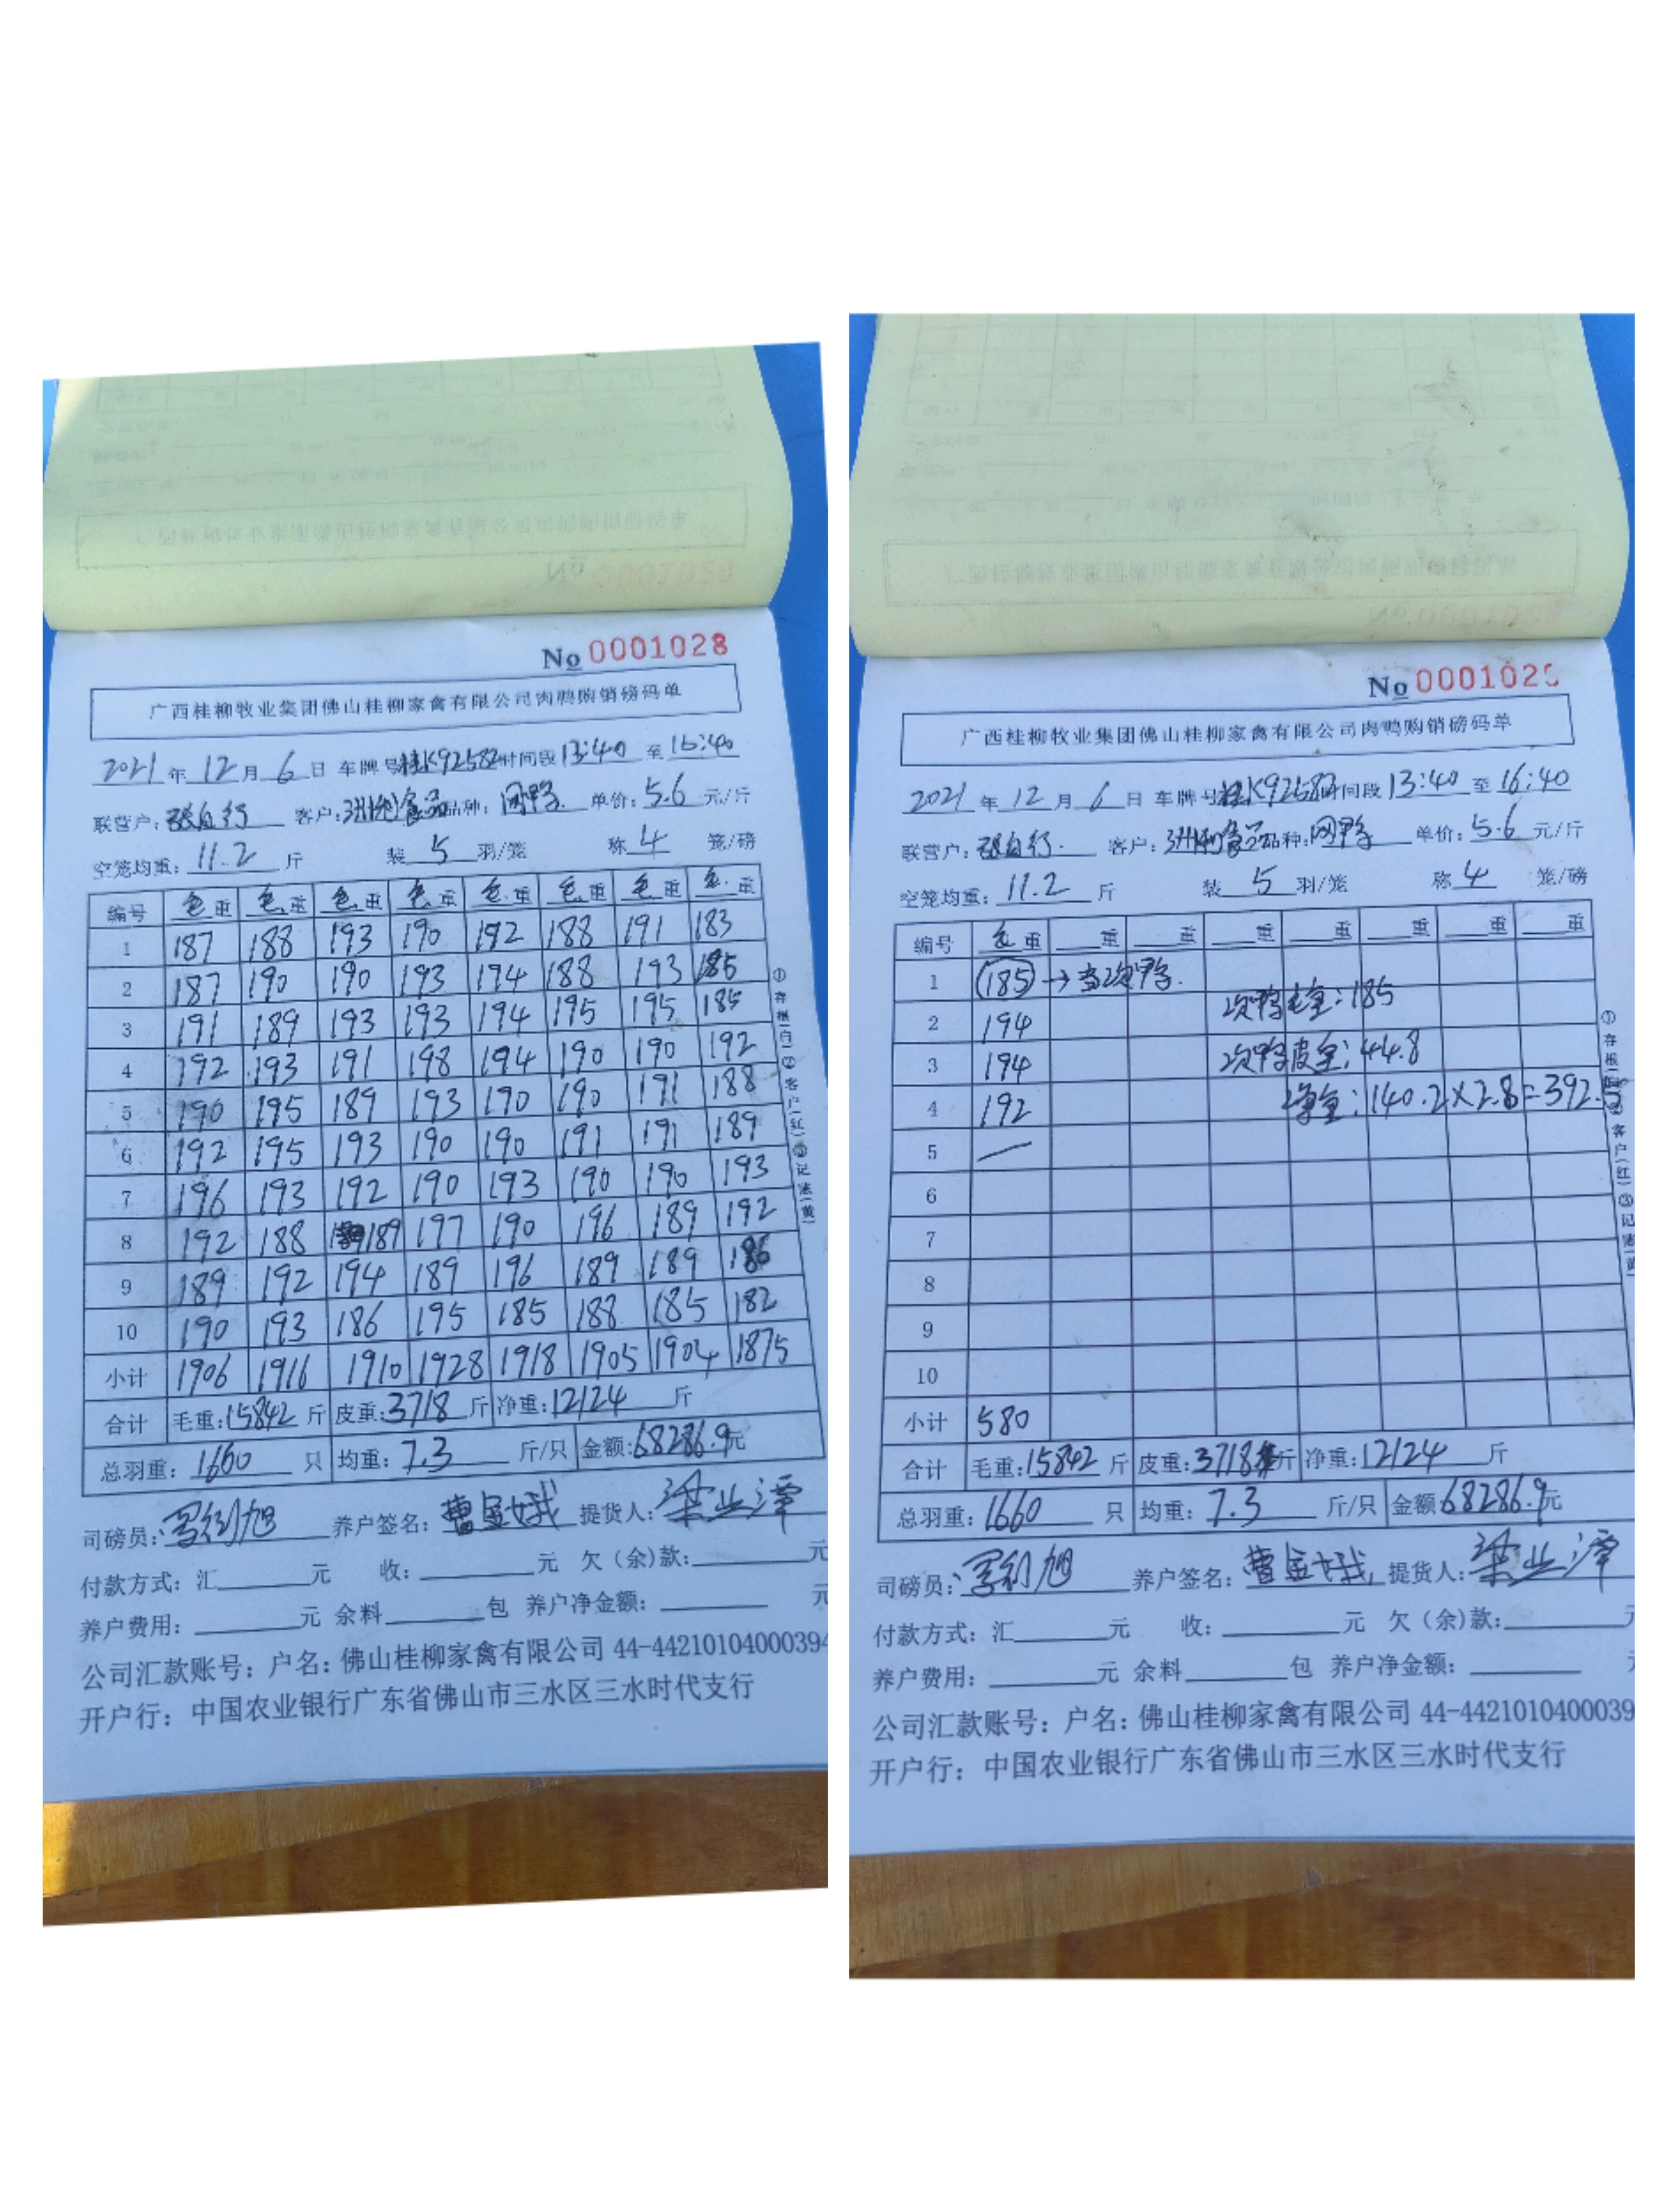 No 0001028
广西桂柳牧业集团佛山桂柳家禽有限公司肉鸭购销磅码单
2021 年 12 月 6 日 车牌号:桂K92582 时间段 13:40 至 16:40
联营户: 张自行 客户: 食品 品种: 肉鸭 单价: 5.6 元/斤
空笼均重: 11.2 斤 装 5 羽/笼 称 4 笼/磅
编号 毛重 毛重 毛重 毛重 毛重 毛重 毛重 毛重
1 187 188 193 190 192 188 191 183
2 187 190 190 193 194 188 193 185
3 191 189 193 193 194 195 195 185
4 192 193 191 198 194 190 190 192
5 190 195 189 193 190 190 191 188
6 192 195 193 190 190 191 191 189
7 196 193 192 190 193 190 190 193
8 192 188 189 197 190 196 189 192
9 189 192 194 189 196 189 189 186
10 190 193 186 195 185 188 185 182
小计 1906 1916 1910 1928 1918 1905 1904 1875
合计 毛重: 15842 斤 皮重: 3718 斤 净重: 12124 斤
总羽重: 1660 只 均重: 7.3 斤/只 金额: 68286.9 元
司磅员: 养户签名: 曹 提货人: 梁业潭
付款方式: 汇 元 收: 元 欠(余)款: 元
养户费用: 元 余料 包 养户净金额: 元
公司汇款账号: 户名: 佛山桂柳家禽有限公司 44-44210104000394
开户行: 中国农业银行广东省佛山市三水区三水时代支行
①存根(白)②客户(红)③记账(黄)
No 000102
广西桂柳牧业集团佛山桂柳家禽有限公司肉鸭购销磅码单
2021 年 12 月 6 日 车牌号:桂K92582 时间段 13:40 至 16:40
联营户: 张自行. 客户: 食品 品种: 肉鸭 单价: 5.6 元/斤
空笼均重: 11.2 斤 装 5 羽/笼 称 4 笼/磅
编号 毛重 重 重 重 重 重 重 重
1 (185) → 次鸭.
次鸭毛重: 185
2 194
次鸭皮重: 44.8
3 194
净重: 140.2×2.8=392.
4 192
5 —
6
7
8
9
10
小计 580
合计 毛重: 15842 斤 皮重: 3718 斤 净重: 12124 斤
总羽重: 1660 只 均重: 7.3 斤/只 金额 68286.9 元
司磅员: 养户签名: 曹 提货人: 梁业潭
付款方式: 汇 元 收: 元 欠(余)款: 元
养户费用: 元 余料 包 养户净金额:
公司汇款账号: 户名: 佛山桂柳家禽有限公司 44-4421010400039
开户行: 中国农业银行广东省佛山市三水区三水时代支行
①存根(白)②客户(红)③记账(黄)